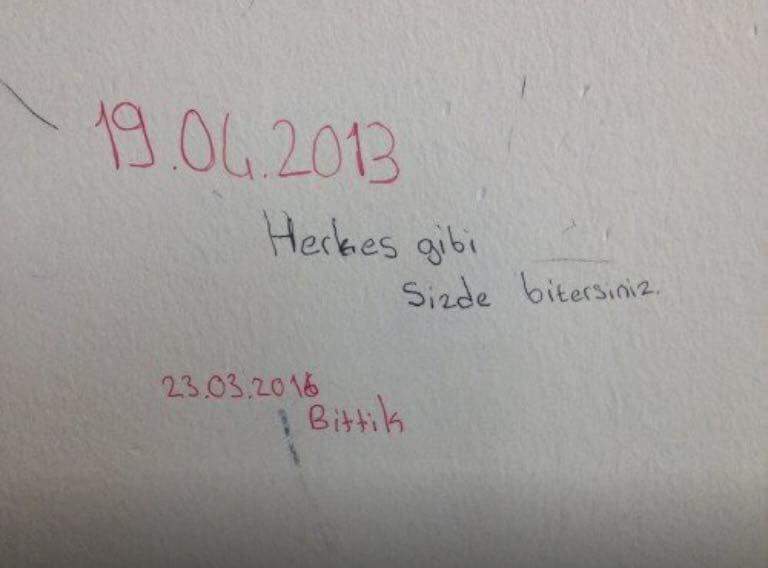 19.04.2013
Herkes gibi
Sizde bitersiniz.
23.03.2016
Bittik